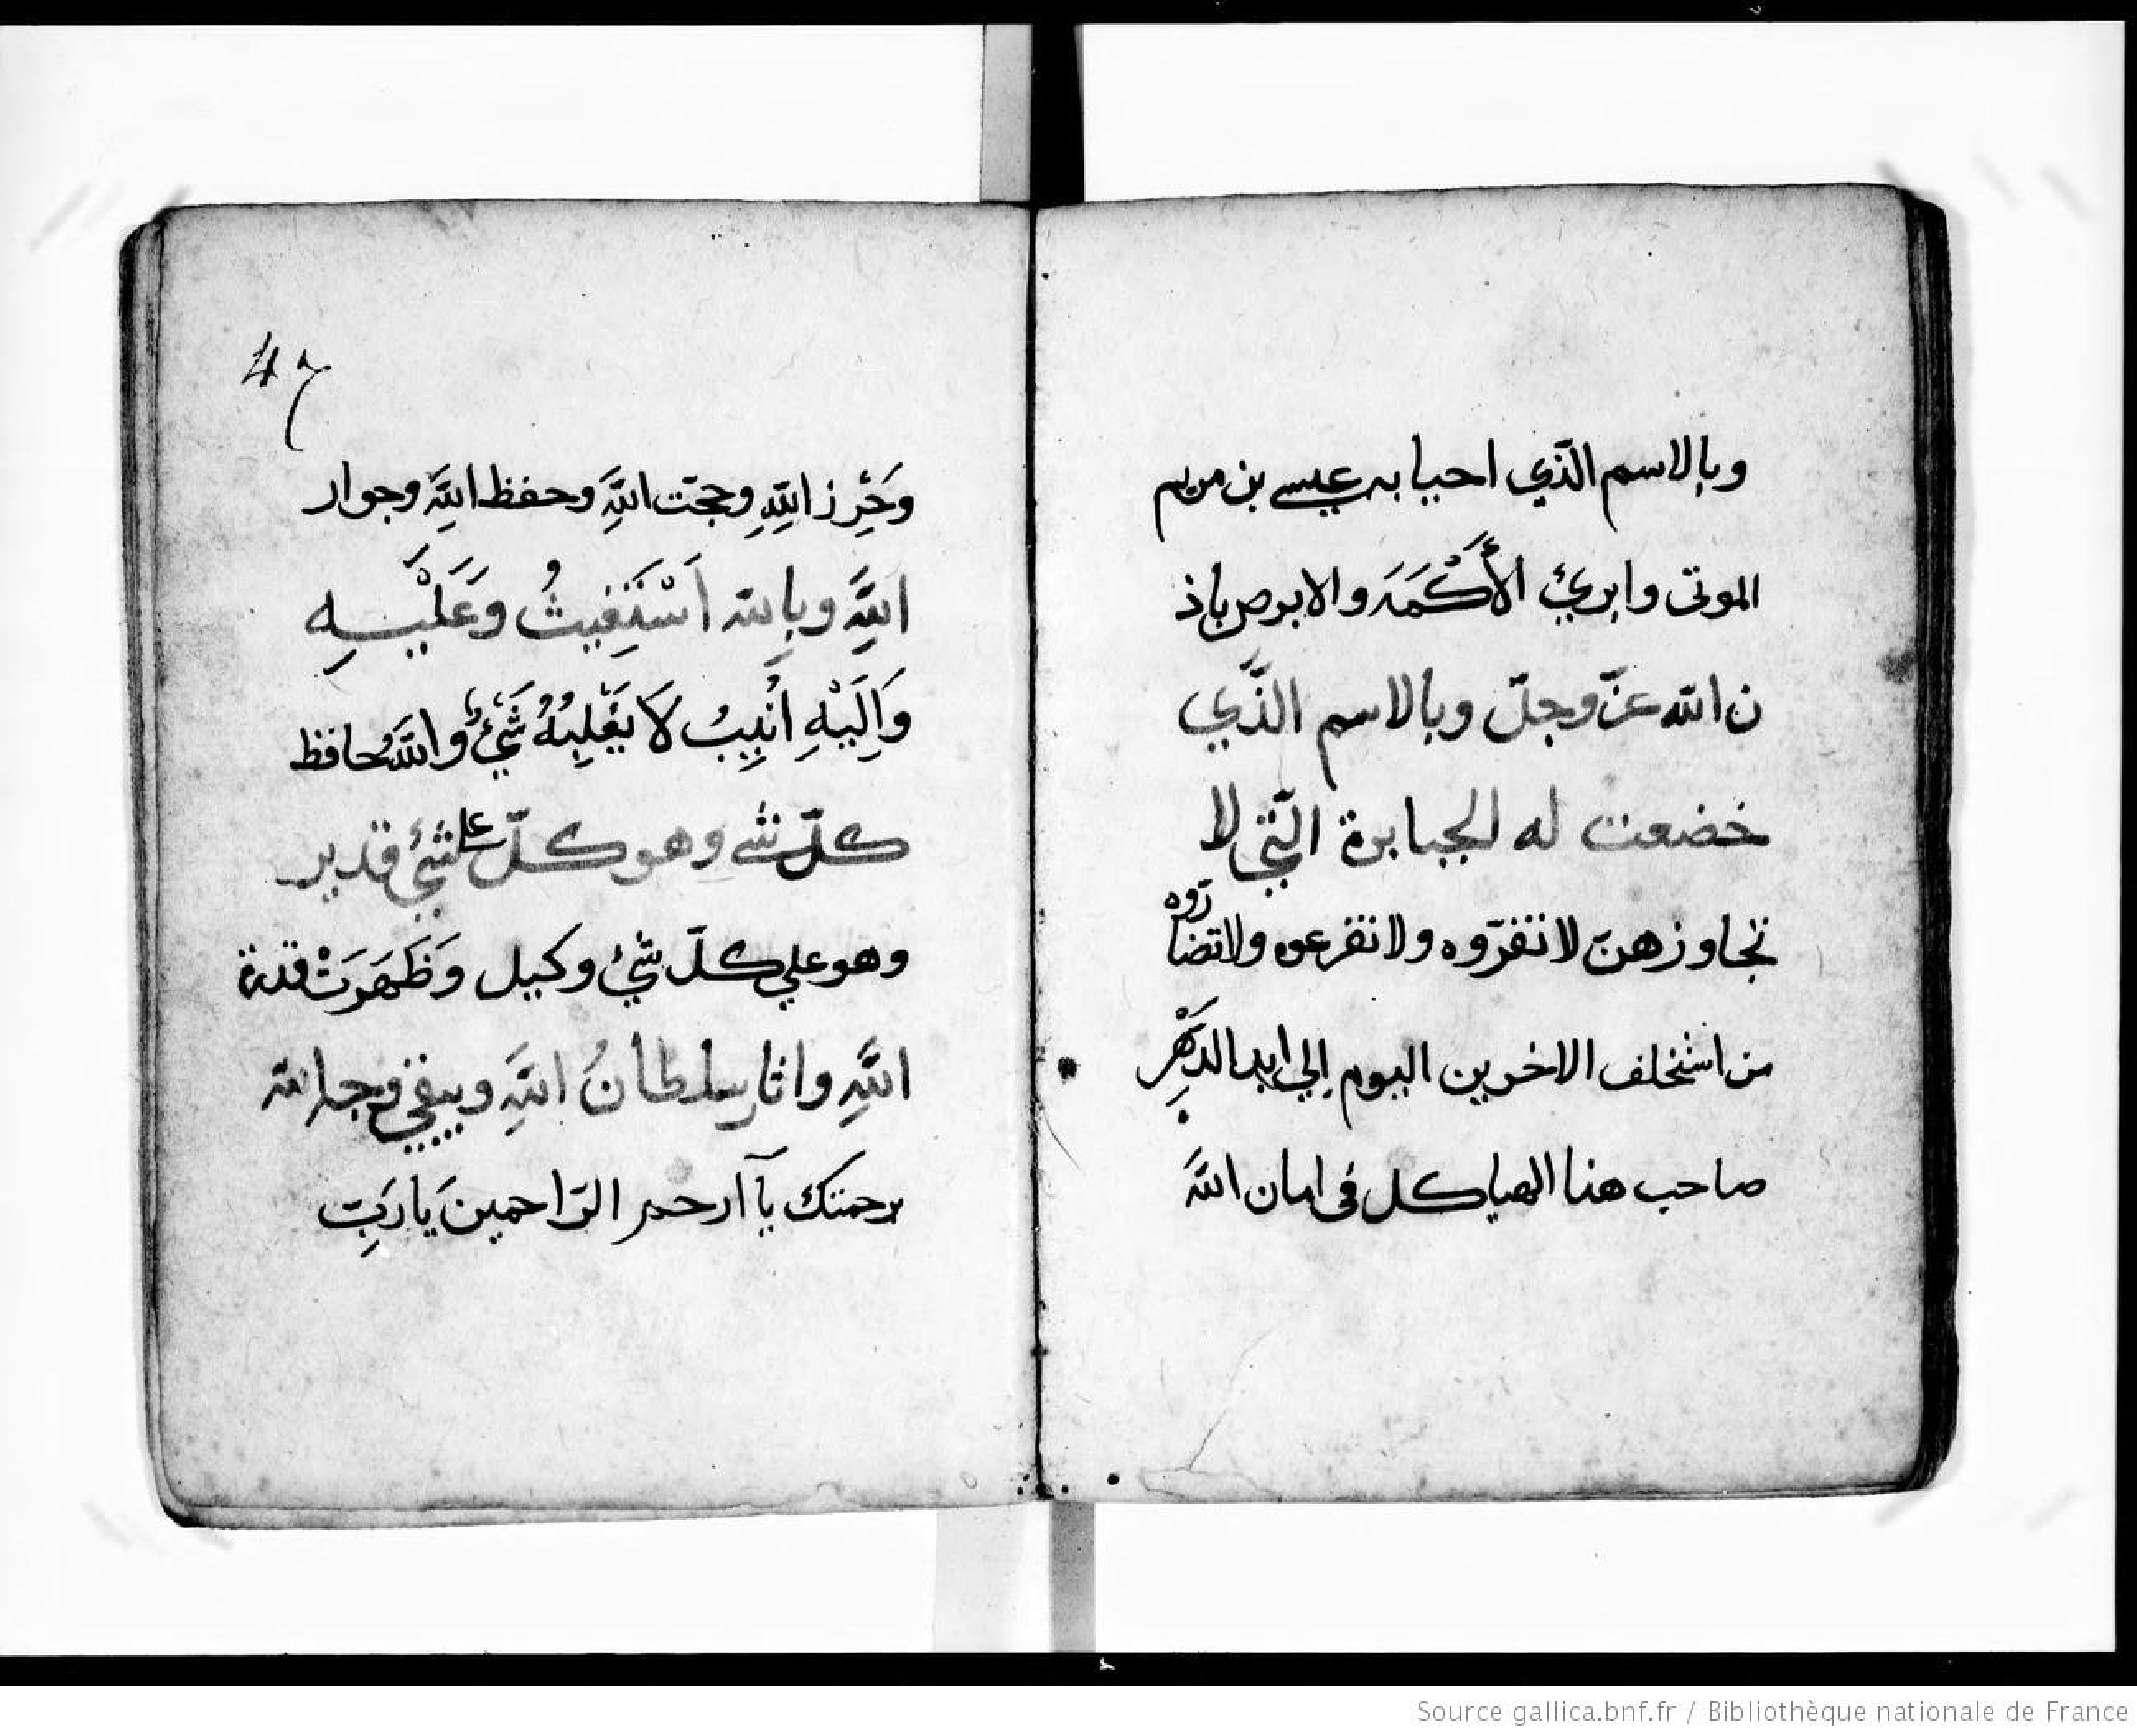 وبالاسم الذّي احيا به عيسى بن مريم
الموتى وابريئ الأَكْمَهَ والابرص باذ
ن الله عزّ وجلّ وبالاسم الذَّي
خضعت له الجبابرة الّتي لا
تجاوزهنّ لا تفرّوه ولا تفرعوه ولا تضا
رّوه
من اشتخلف الاخرين اليوم إلي ابد الدَّهْرِ
صاحب هذا الهياكل في امان اللَّه
47
وَحِْرز اللَّهِ وحجّت اللَّهِ وحفظ اللَّهِ وجوار
اللَّهِ وبالله اَسْتَغِيثُ وَعَلَيْهِ
وَاِلَيْهِ اُنِيبُ لاَ يَغْلِبُهُ شَيْئٌ واللَّهُ حافظ
كلّ شيء وهو كلّ على شيئ قدير
وهو علي كلّ شيئ وكيل وَظَهَرَتْ قدرة
اللَّهِ واثار سلطانُ اللَّهِ ويبقي وجه الله
برحمتك يآ ارحم الرّاحمينَ يا رَبِّ
Source gallica.bnf.fr / Bibliothèque nationale de France